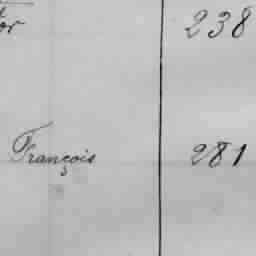 238
François 281